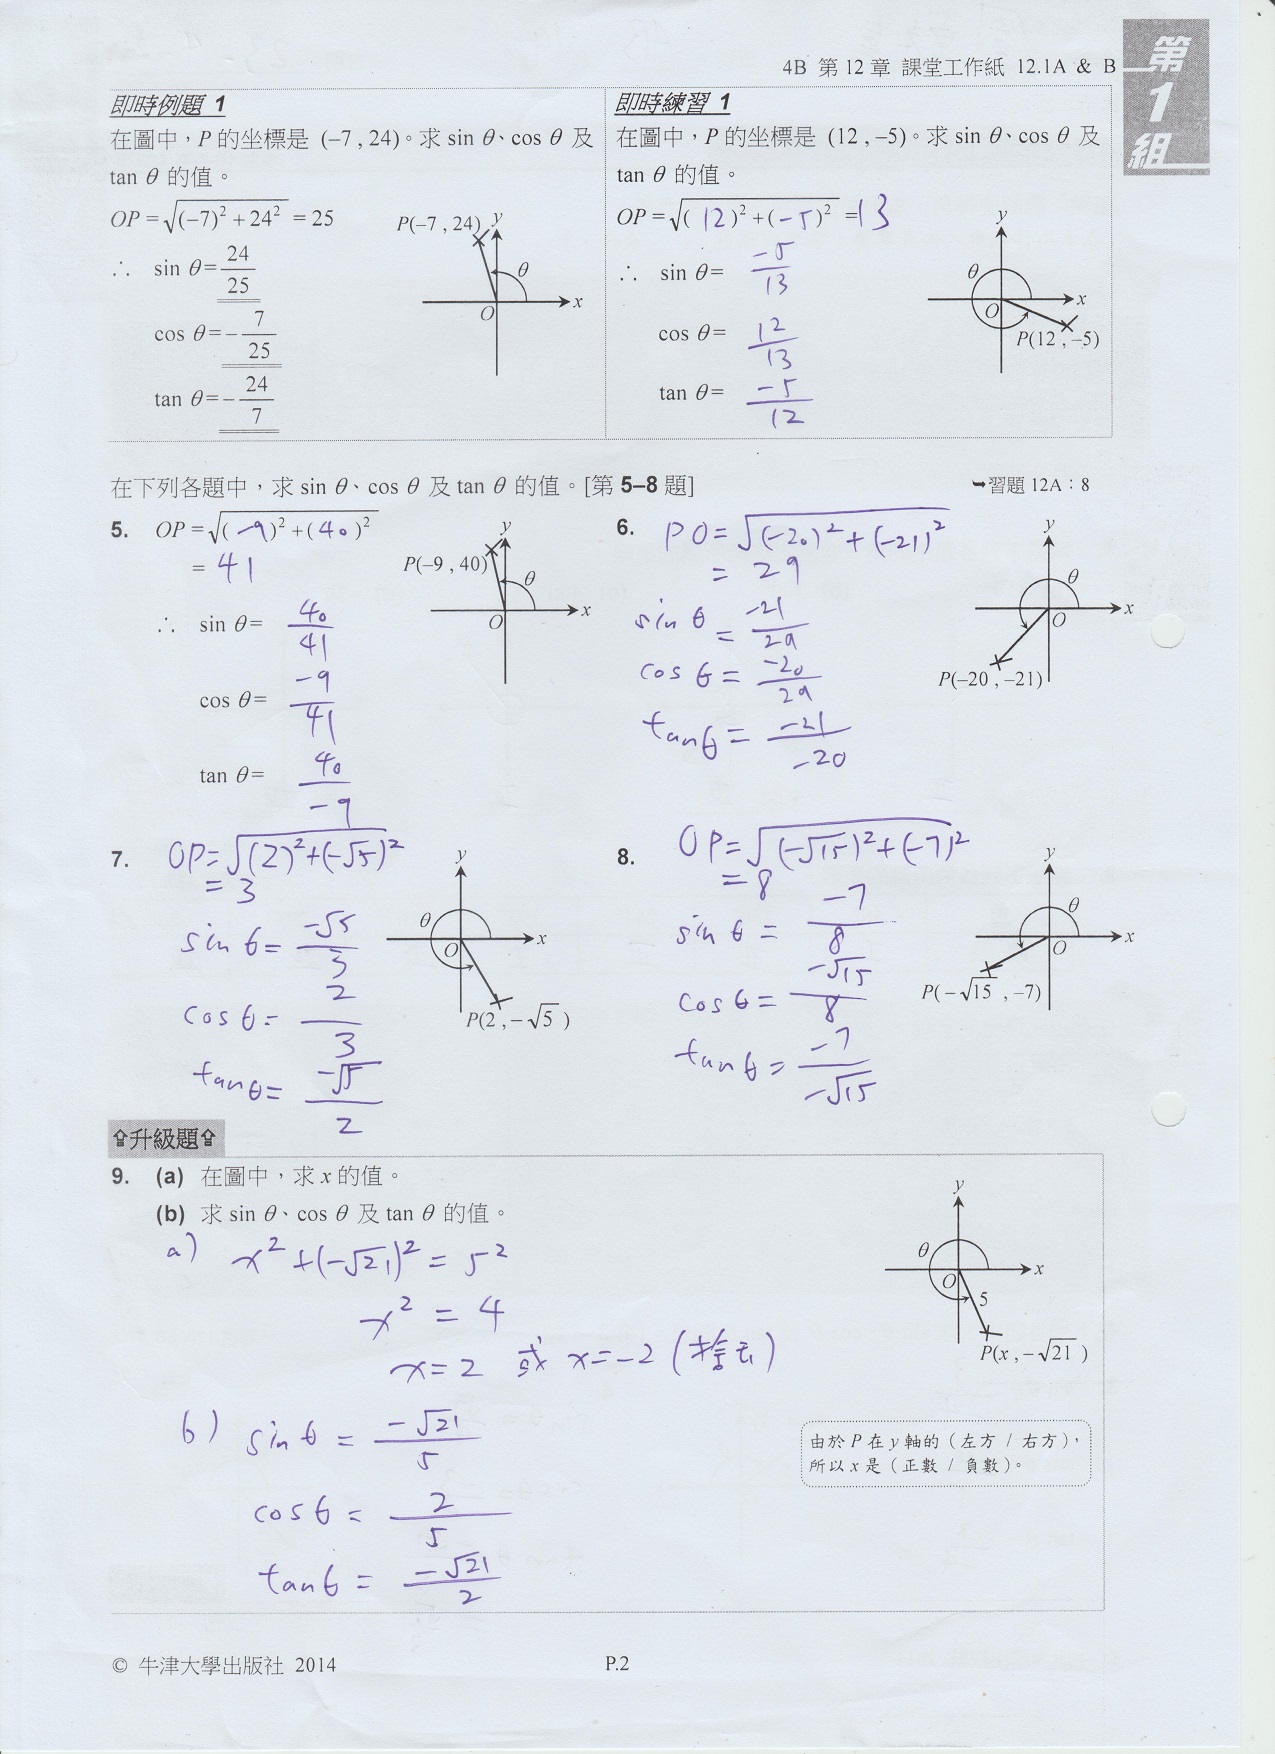 4B 第 12 章 課堂工作紙 12.1A & B
第
1
組
即時例題 1
在圖中，P 的坐標是 (–7 , 24)。求 sin θ、cos θ 及
tan θ 的值。
OP = √((–7)² + 24²) = 25
∴ sin θ = 24/25
cos θ = –7/25
tan θ = –24/7
P(–7 , 24)
y
θ
O
x
即時練習 1
在圖中，P 的坐標是 (12 , –5)。求 sin θ、cos θ 及
tan θ 的值。
OP = √(( 12 )² + ( –5 )²) = 13
∴ sin θ = –5/13
cos θ = 12/13
tan θ = –5/12
y
θ
O
x
P(12 , –5)
在下列各題中，求 sin θ、cos θ 及 tan θ 的值。[第 5–8 題]
➥習題 12A：8
5. OP = √(( –9 )² + ( 40 )²)
= 41
∴ sin θ = 40/41
cos θ = –9/41
tan θ = 40/–9
y
P(–9 , 40)
θ
O
x
6. PO = √((–20)² + (–21)²)
= 29
sin θ = –21/29
cos θ = –20/29
tan θ = –21/–20
y
θ
O
x
P(–20 , –21)
7. OP = √((2)² + (–√5)²)
= 3
sin θ = –√5/3
cos θ = 2/3
tan θ = –√5/2
y
θ
O
x
P(2 , –√5 )
8. OP = √((–√15)² + (–7)²)
= 8
sin θ = –7/8
cos θ = –√15/8
tan θ = –7/–√15
y
θ
O
x
P(–√15 , –7)
⇧升級題⇧
9. (a) 在圖中，求 x 的值。
(b) 求 sin θ、cos θ 及 tan θ 的值。
a) x² + (–√21)² = 5²
x² = 4
x = 2 或 x = –2 (捨去)
b) sin θ = –√21/5
cos θ = 2/5
tan θ = –√21/2
y
θ
O
x
5
P(x , –√21 )
由於 P 在 y 軸的（左方 / 右方），
所以 x 是（正數 / 負數）。
© 牛津大學出版社 2014
P.2